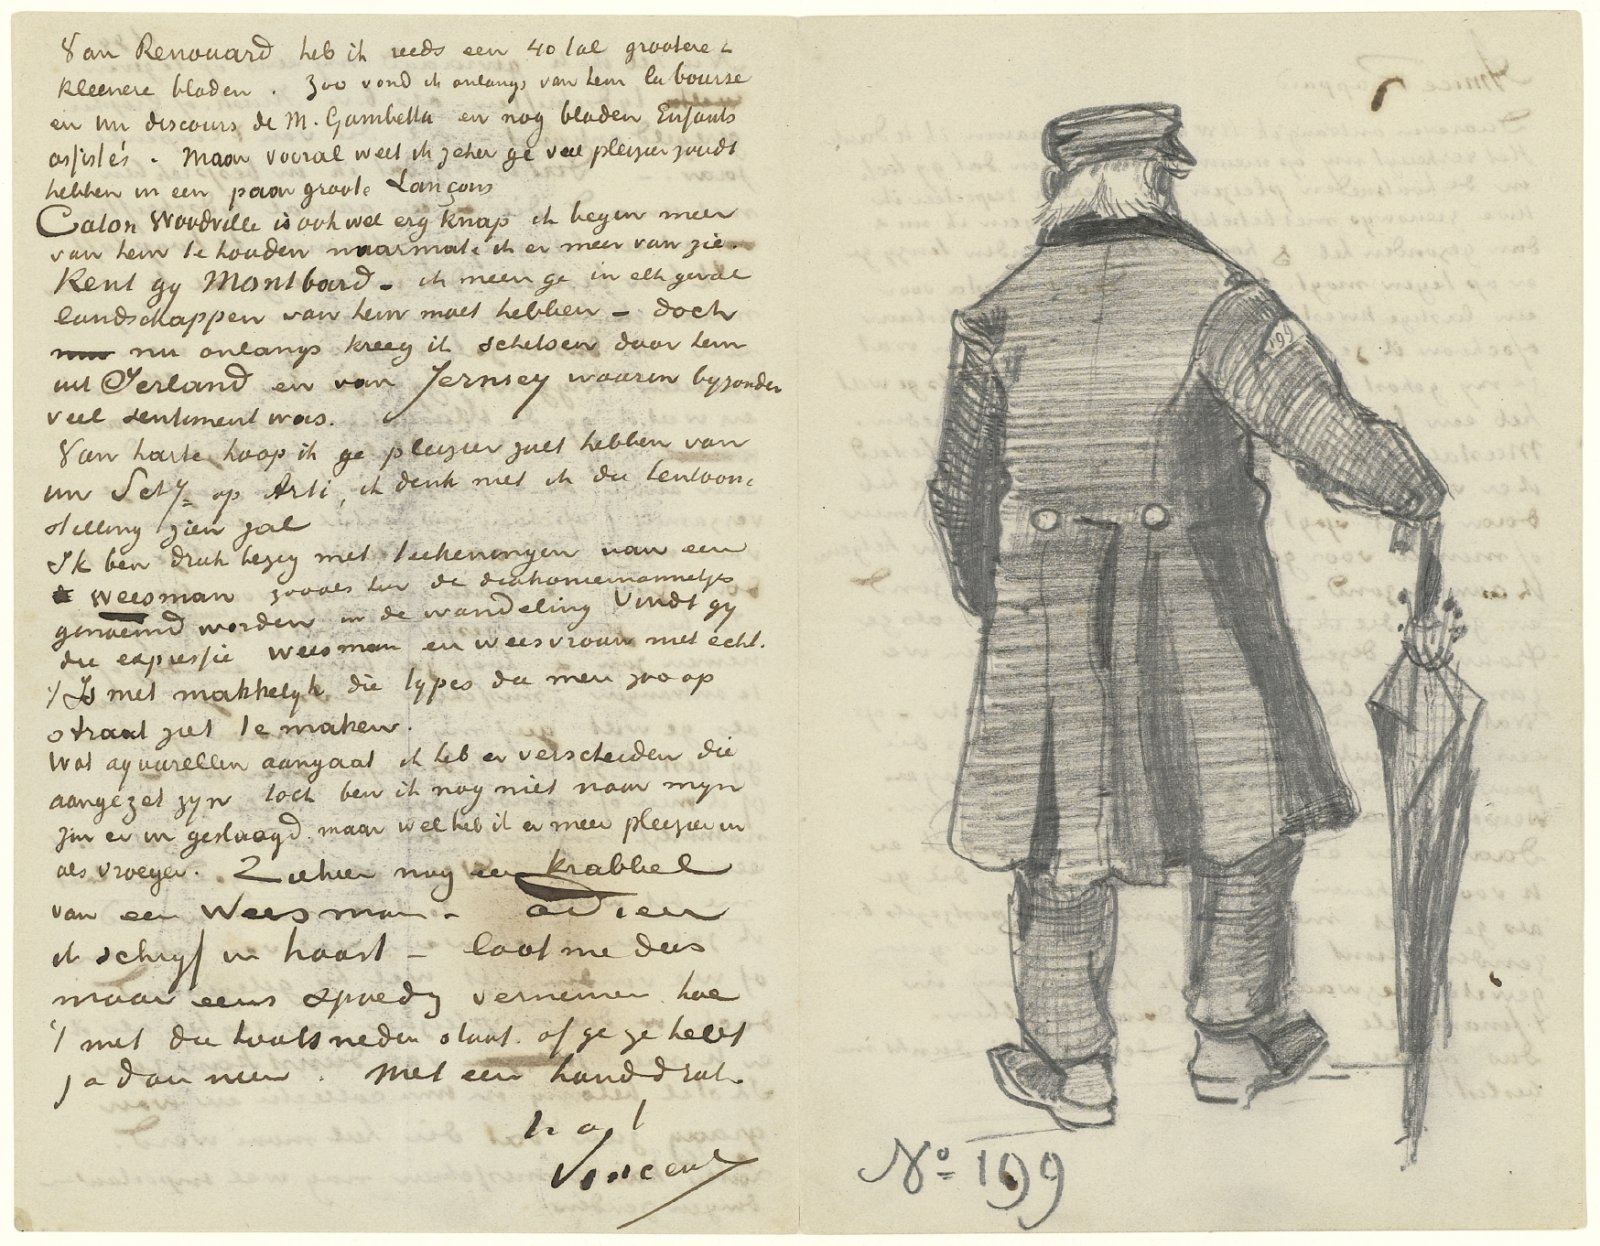 Van Renouard heb ik reeds een 40 tal grootere &
kleenere bladen. Zoo vond ik onlangs van hem la bourse
en un discours de M. Gambetta en nog bladen Enfants
assistés. Maar vooral weet ik zeker ge veel pleizier zoudt
hebben in een paar groote Lançons
Caton Woodville is ook wel erg knap ik begin meer
van hem te houden naarmate ik er meer van zie.
Kent gy Montbard – ik meen ge in elk geval
landschappen van hem moet hebben – doch
nu onlangs kreeg ik schetsen door hem
uit Ierland en van Jernsey waarin byzonder
veel sentiment was.
Van harte hoop ik ge pleizier zult hebben van
uw Schy= op Arti, ik denk niet ik die tentoon=
stelling zien zal
Ik ben druk bezig met teekeningen van een
weesman zooals hier de diakoniemannetjes
genoemd worden in de wandeling Vindt gy
die expressie weesman en weesvrouw niet echt.
't Is niet makkelyk die types die men zoo op
straat ziet te maken.
Wat aquarellen aangaat ik heb er verscheiden die
aangezet zyn toch ben ik nog niet naar myn
zin er in geslaagd. maar wel heb ik er meer pleizier in
als vroeger. Ziehier nog een krabbel
van een Weesman – adieu
ik schryf in haast – laat me dus
maar eens spoedig vernemen hoe
't met die houtsneden staat. of ge ze hebt
ja dan neen. Met een handdruk.
t. à t.
Vincent
199
No 199